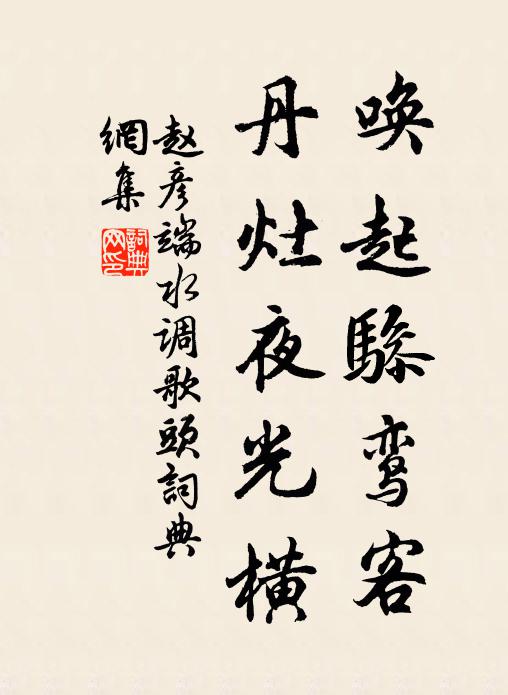 唤起骖鸾客
丹灶夜光横
赵彦端水调歌頭詞典
網集
詞典网印